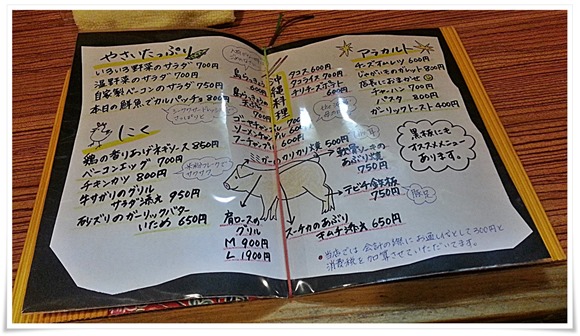 やさいたっぷり
いろいろ野菜のサラダ 700円
温野菜のサラダ 700円
自家製ベーコンのサラダ 750円
本日の鮮魚でカルパッチョ 800円
にく
鶏の香りあげネギソース 850円
ベーコンエッグ 700円
チキンカツ 800円
牛サガリのグリル
サラダ添え 950円
砂ズリのガーリックバター
いため 650円
沖縄料理
タコス 600円
タコライス 700円
ソーメンチャンプル
ミミガーのカリカリ揚 500円
軟骨ソーキの
あぶり焼
750円
テビチ鉄板
750円
スーチカのあぶり
キムチ添え 650円
肩ロースの
グリル
M 900円
L 1900円
アラカルト
チーズオムレツ 600円
じゃがいものガレット 800円
店長におまかせ
チャーハン 700円
パスタ 800円
ガーリックトースト 400円
黒板にも
オススメメニュー
あります。
豚足
●当店では会計の際にお通し代として300円と
消費税を加算させていただいてます。